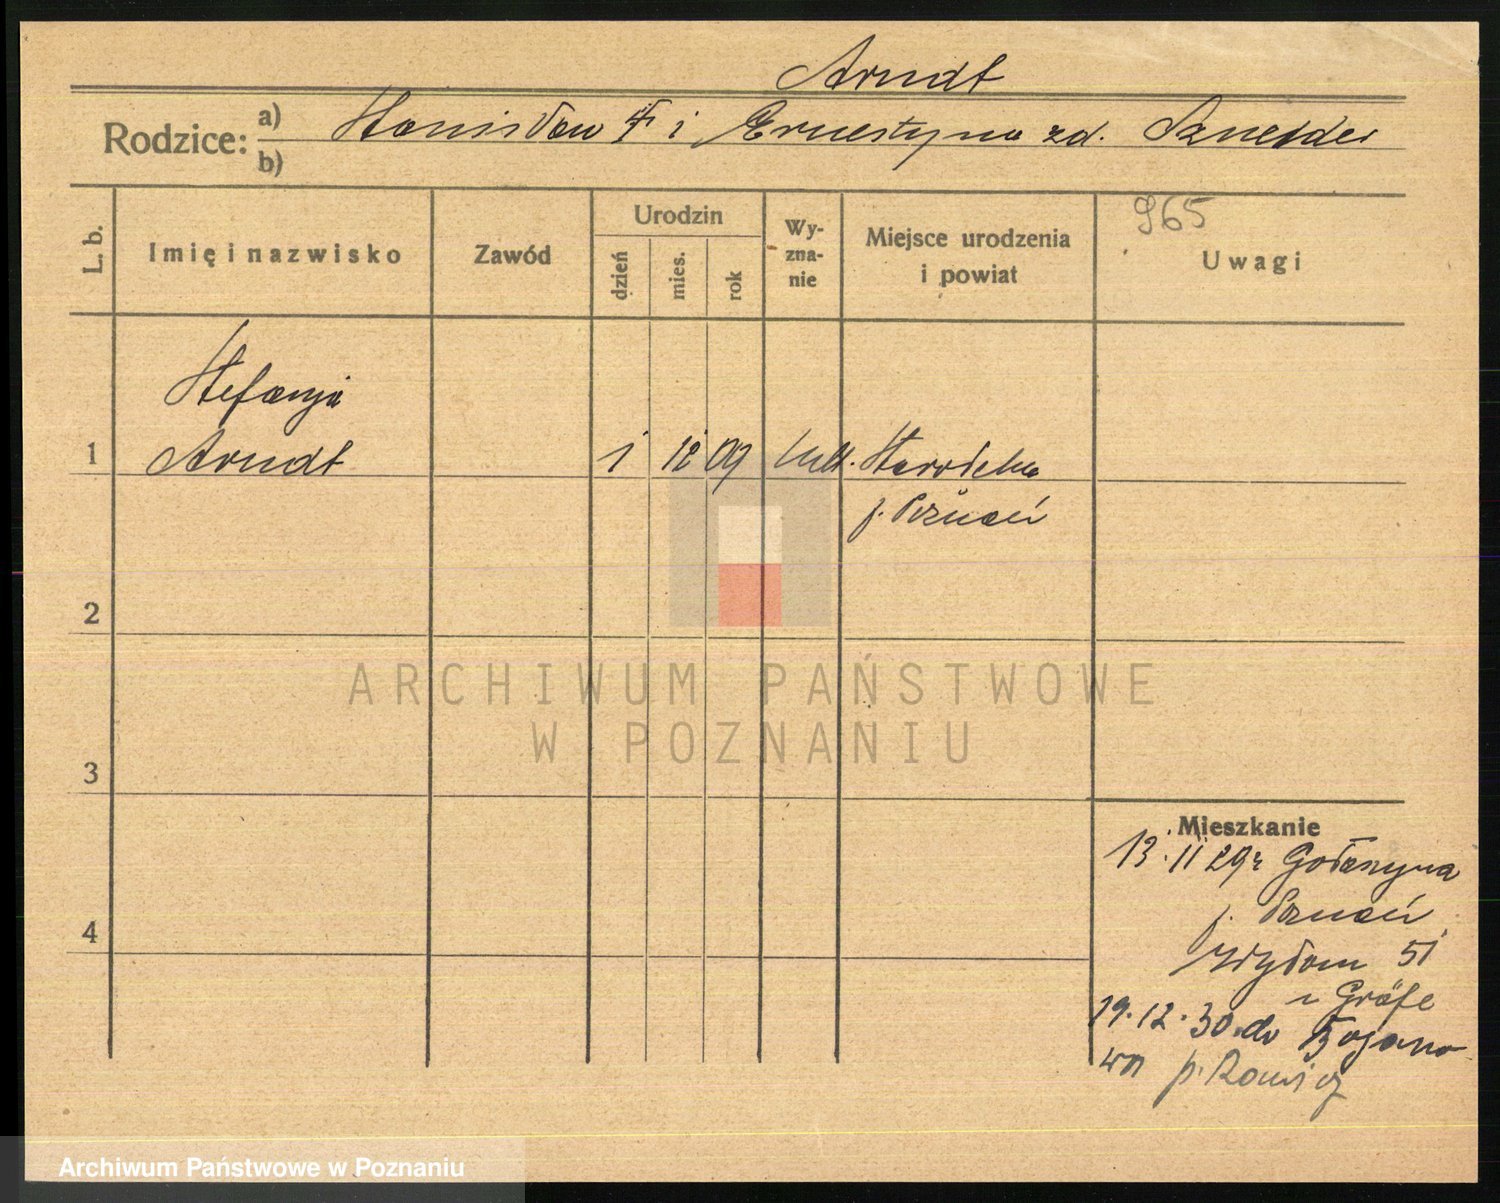 Arndt
Rodzice: a) Stanisław i Ernestyna zd. Sznejder
b)
965
L. b. Imię i nazwisko Zawód Urodzin dzień mies. rok Wy-zna-nie Miejsce urodzenia i powiat Uwagi
Stefanja
1 Arndt 1 12 09 Starołeka
p. Poznań
2
ARCHIWUM PAŃSTWOWE
W POZNANIU
3
Mieszkanie
13.11 29r Gołaszyna
p. Poznań
4
51
Gräfe
19.12.30. do Bojano
wa p. Rawicz
Archiwum Państwowe w Poznaniu